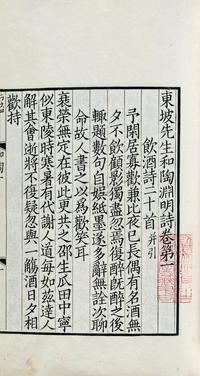 東坡先生和陶淵明詩卷第一
飲酒詩二十首并引
予閑居寡歡兼比夜已長偶有名酒無
夕不飲顧影獨盡忽焉復醉既醉之後
輒題數句自娛紙墨遂多辭無詮次聊
命故人書之以為歡笑耳
衰榮無定在彼此更共之邵生瓜田中寧
似東陵時寒暑有代謝人道每如茲達人
解其會逝將不復疑忽與一觴酒日夕相
歡持